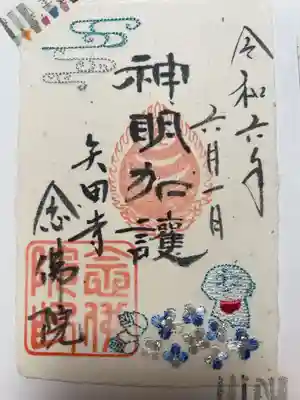 令和六年
六月一日
神明加護
矢田寺
念佛院